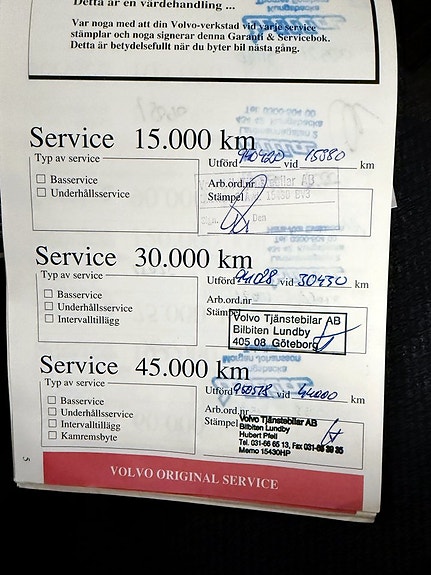 Detta är en värdehandling ...
Var noga med att din Volvo-verkstad vid varje service
stämplar och noga signerar denna Garanti & Servicebok.
Detta är betydelsefullt när du byter bil nästa gång.
Service 15.000 km
Typ av service
Utförd 940420 vid 15880 km
Basservice
Underhållsservice
Arb.ord.nr
Stämpel
Tjänstebilar AB
Service 30.000 km
Typ av service
Utförd 941028 vid 30430 km
Basservice
Underhållsservice
Intervalltillägg
Arb.ord.nr
Volvo Tjänstebilar AB
Bilbiten Lundby
405 08 Göteborg
Service 45.000 km
Typ av service
Utförd 950518 vid km
Basservice
Underhållsservice
Intervalltillägg
Kamremsbyte
Arb.ord.nr
Stämpel
Volvo Tjänstebilar AB
Bilbiten Lundby
Hubert Pfeil
Tel. 031-66 65 13, Fax 031-
Memo 15430HP
5
VOLVO ORIGINAL SERVICE